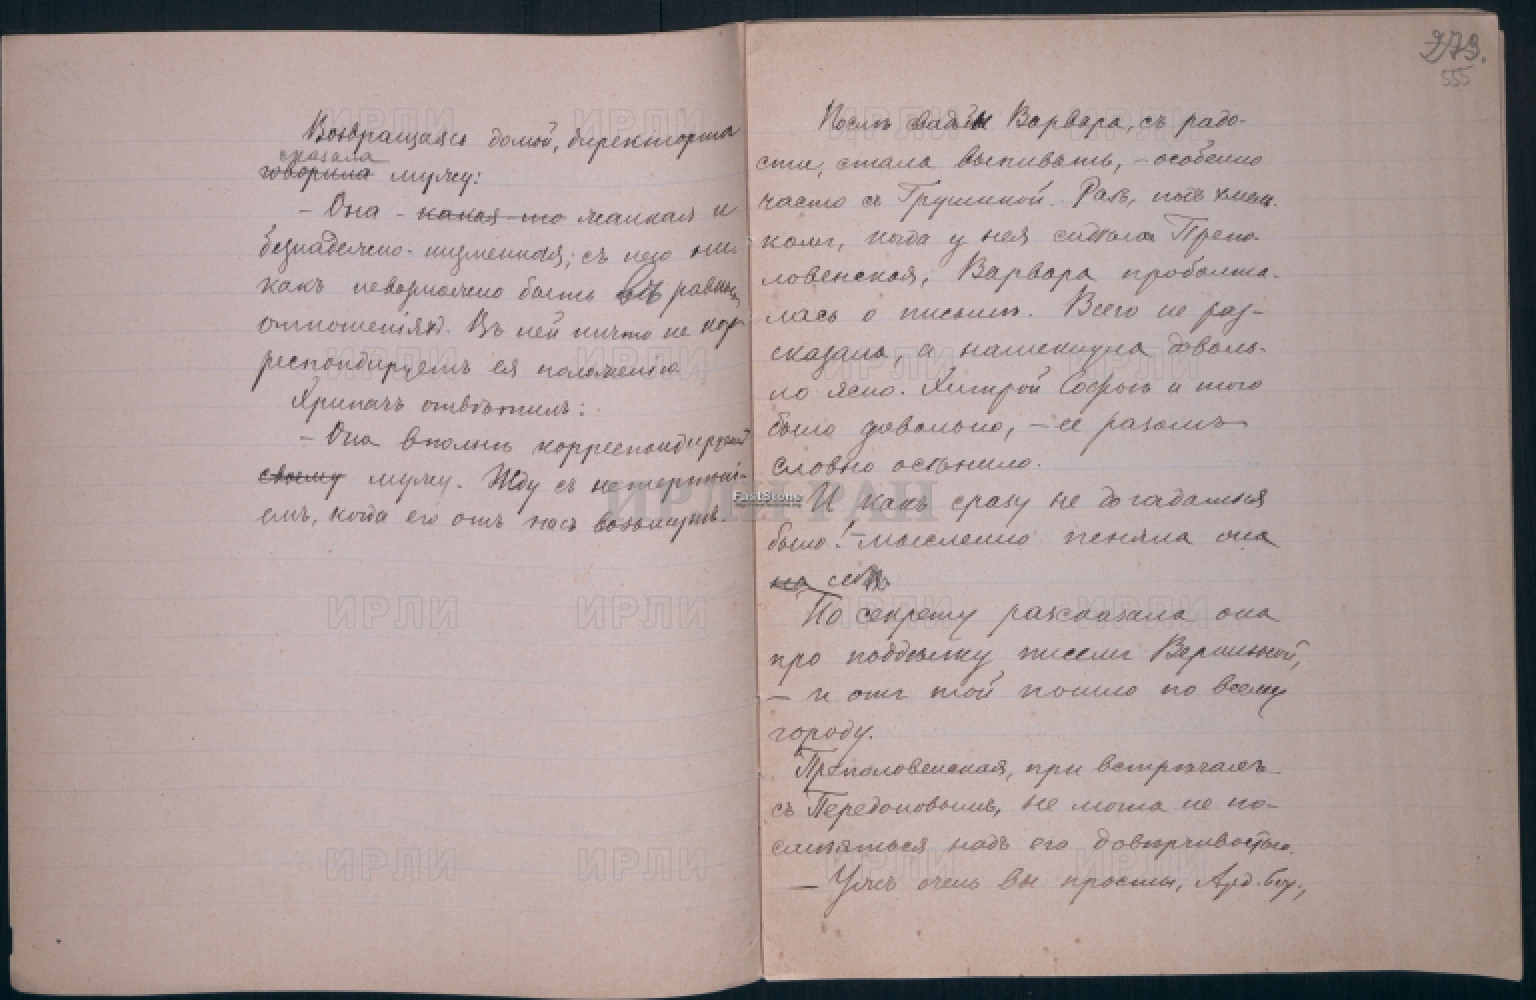 Возвращаясь домой, директорша
сказала
говорила мужу:
– Она – какая-то жалкая и
безнадежно-низменная; съ нею ни-
какъ невозможно быть въ равныхъ
отношеніяхъ. Въ ней ничто не кор-
респондируетъ ея положенію.
Хрипачъ отвѣтилъ:
– Она вполнѣ корреспондируетъ
своему мужу. Жду съ нетерпѣні-
емъ, когда его отъ насъ возьмутъ.
273.
555
Послѣ свадьбы Варвара, съ радо-
сти, стала выпивать, – особенно
часто съ Грушиной. Разъ, подъ хмѣль-
комъ, когда у нея сидѣла Препо-
ловенская, Варвара проболта-
лась о письмѣ. Всего не раз-
сказала, а намекнула доволь-
но ясно. Хитрой Софьѣ и того
было довольно, – ее разомъ
словно осѣнило.
И какъ сразу не догадаться
было! – мысленно пеняла она
на себя.
По секрету разсказала она
про поддѣлку писемъ Вершиной,
– и отъ той пошло по всему
городу.
Преполовенская, при встрѣчахъ
съ Передоновымъ, не могла не по-
смѣяться надъ его довѣрчивостью.
– Ужъ очень вы просты, Ард. Бор.,
ИРЛИ ИРЛИ ИРЛИ ИРЛИ
ИРЛИ РАН
FastStone